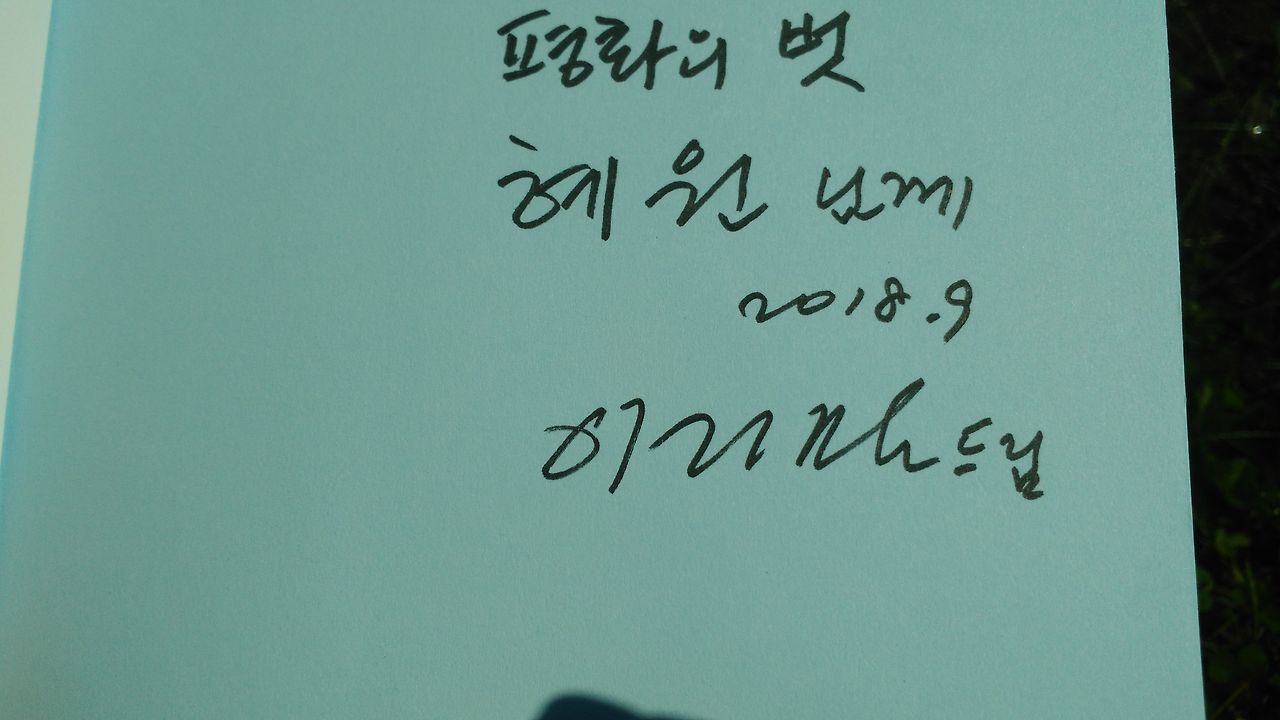 평화의 벗
혜원 님께
2018.9
드림